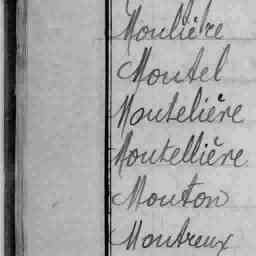 Moulière
Moutel
Moutelière
Moutellière
Mouton
Moutreux